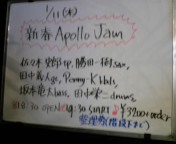 1/11(木)
新春 Apollo Jam
佐々木史郎tp, 勝田一樹sax,
田中義人gs, Penny-K kbds,
坂本竜太bass, 田中栄二drums,
18:30 OPEN 19:30 START ¥3200+order
整理券(階段下まで)